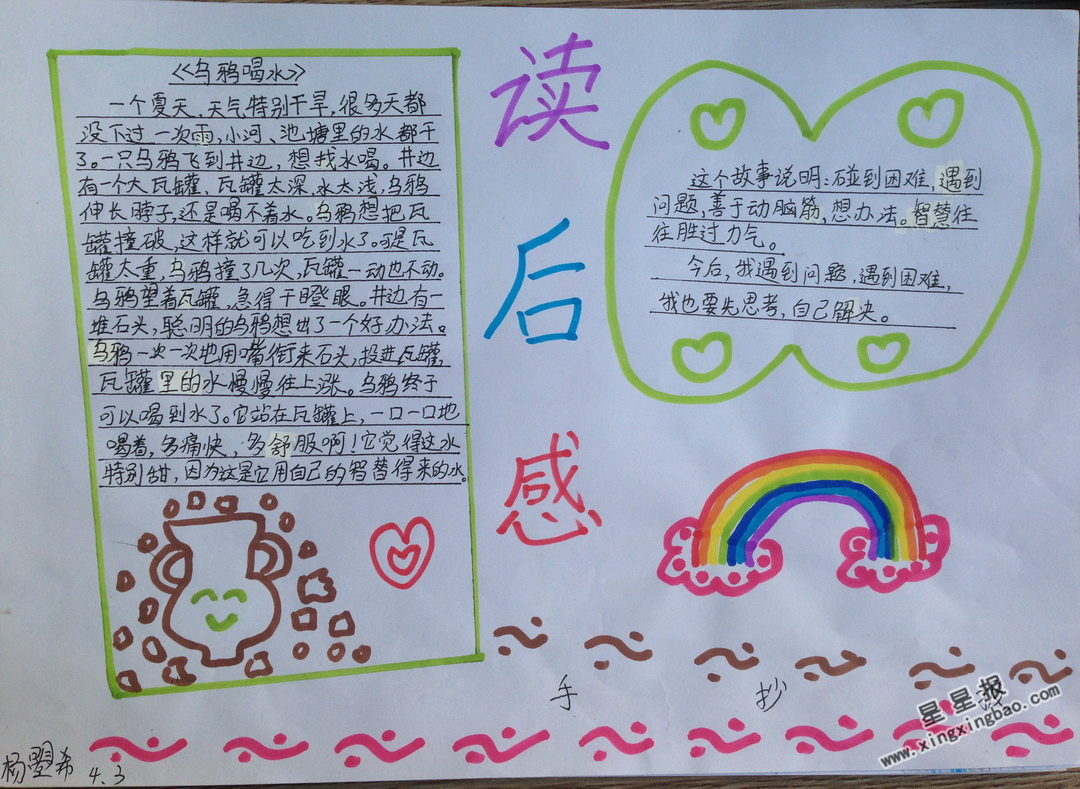 《乌鸦喝水》
一个夏天，天气特别干旱，很多天都
没下过一次雨，小河、池塘里的水都干
了。一只乌鸦飞到井边，想找水喝。井边
有一个大瓦罐，瓦罐太深，水太浅，乌鸦
伸长脖子，还是喝不着水。乌鸦想把瓦
罐撞破，这样就可以吃到水了。可是瓦
罐太重，乌鸦撞了几次，瓦罐一动也不动。
乌鸦望着瓦罐，急得干瞪眼。井边有一
堆石头，聪明的乌鸦想出了一个好办法。
乌鸦一次一次地用嘴衔来石头，投进瓦罐，
瓦罐里的水慢慢往上涨。乌鸦终于
可以喝到水了。它站在瓦罐上，一口一口地
喝着，多痛快，多舒服啊！它觉得这水
特别甜，因为这是它用自己的智替得来的水。
读
后
感
这个故事说明：碰到困难，遇到
问题，善于动脑筋，想办法。智慧往
往胜过力气。
今后，我遇到问题，遇到困难，
我也要先思考，自己解决。
手 抄
星星报
www.xingxingbao.com
杨曌希 4.3